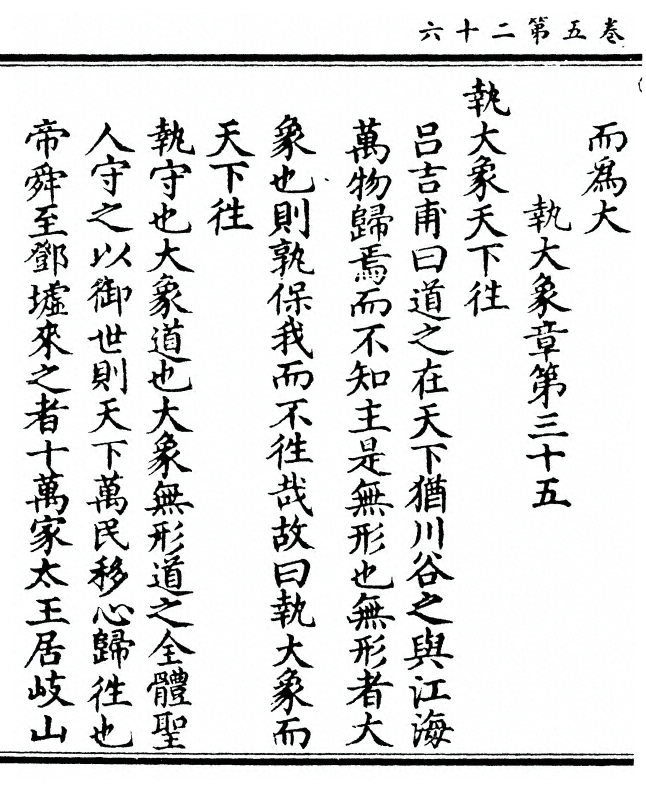 卷五第二十六
而為大
執大象章第三十五
執大象天下往
呂吉甫曰道之在天下猶川谷之與江海
萬物歸焉而不知主是無形也無形者大
象也則孰保我而不往哉故曰執大象而
天下往
執守也大象道也大象無形道之全體聖
人守之以御世則天下萬民移心歸往也
帝舜至鄧墟來之者十萬家太王居岐山